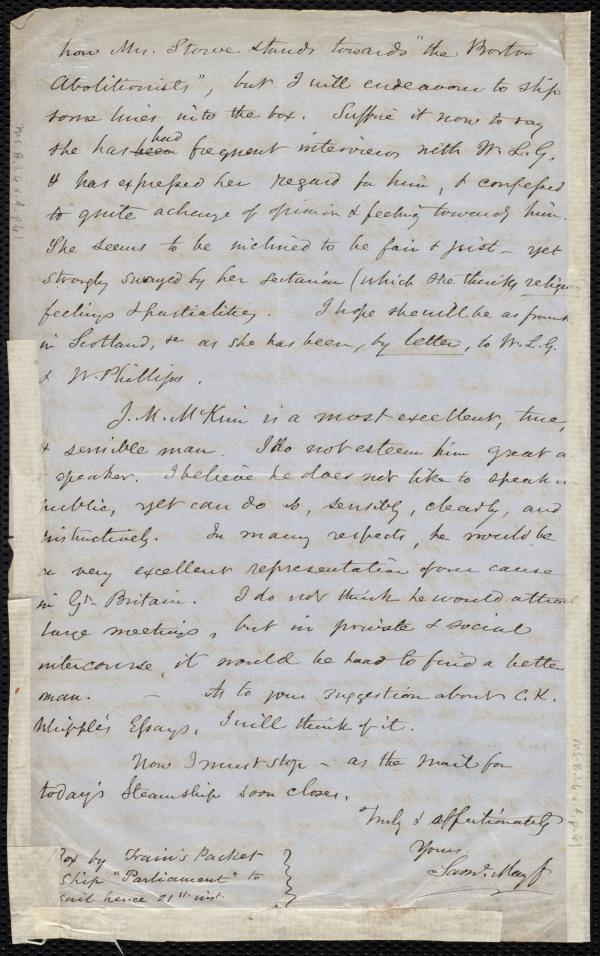 how Mrs. Stowe stands towards "the Boston
Abolitionists", but I will endeavour to slip
some lines into the box. Suffice it now to say
she has been had frequent interviews with W.L.G.
& has expressed her regard for him, & confessed
to quite a change of opinion & feeling towards him.
She seems to be inclined to be fair & just - yet
strongly swayed by her sectarian (which she thinks religious
feelings & partialities. I hope she will be as frank
in Scotland, &c as she has been, by letter, to W.L.G.
& W. Phillips.
J. M. McKim is a most excellent, true,
& sensible man. I do not esteem him great a
speaker. I believe he does not like to speak in
public, yet can do so, sensibly, clearly, and
instructively. In many respects, he would be
a very excellent representation of our cause
in Gt. Britain. I do not think he would attract
large meetings, but in private & social
intercourse, it would be hard to find a better
man. - As to your suggestion about C.K.
Whipple's Essays, I will think of it.
Now I must stop - as the mail for
today's Steamship soon closes.
Truly & affectionately
Yours
Saml. May Jr
Box by Train's Packet
Ship "Parliament" to
sail hence 21st inst.
Ms.B.1.6 v.4 p.41